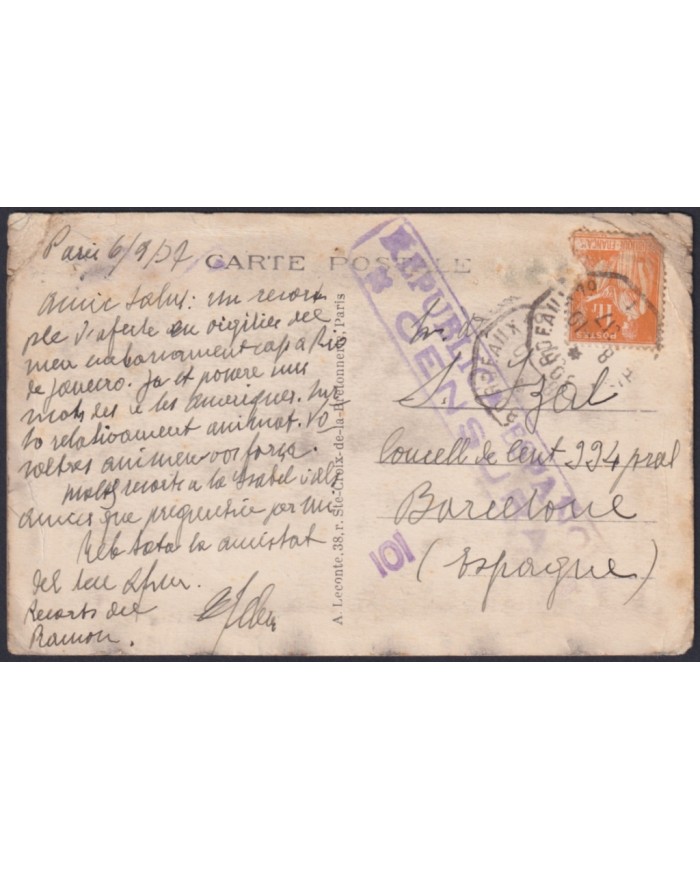 Paris 6/9/37
CARTE POSTALE
Amic Salus: un recort
d'aferte en vigilies del
meu embarcament cap a Rio
de Janeiro. Ja et posaré uns
mots des de les Amèriques. Vaig
relativament animat. Vo
saltres animeu-vos força.
Molts recorts a la Isabel i als
amics que preguntin per mi.
Reb tota la amistat
del teu
Recorts del
Ramon.
A. Leconte, 38, r. Ste-Croix-de-la-Bretonnerie, Paris
REPUBLICA ESPAÑOLA
* CENSURA *
101
BORDEAUX
BORDEAUX
POSTES
S.
Concell de Cent 334 pral
Barcelone
(Espagne)